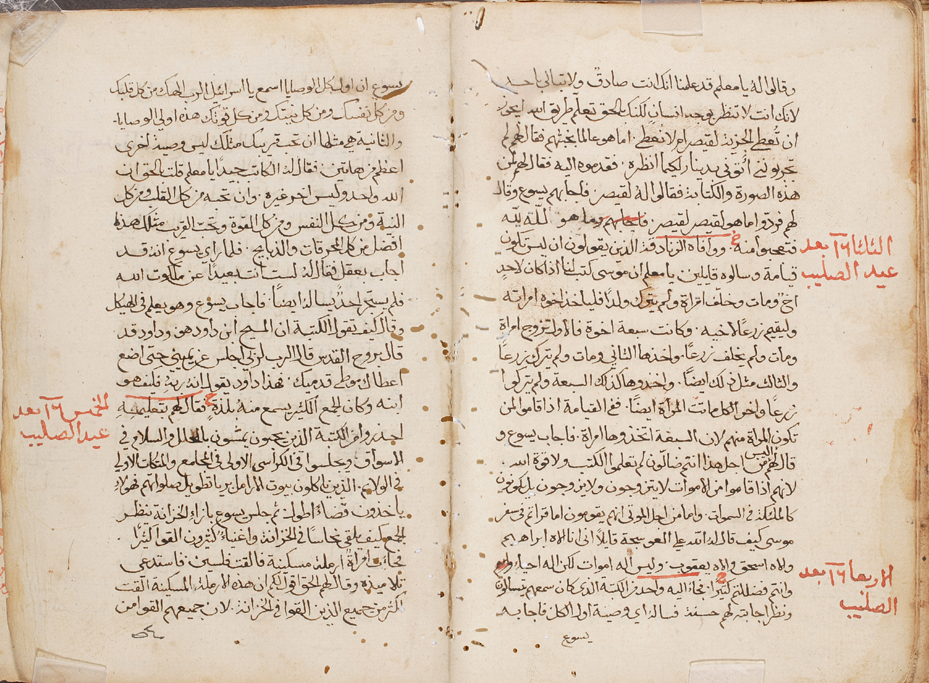 وقالوا له يا معلم قد علمنا انك انت صادق ولا تبالي باحد
لانك انت لا تنظر بوجه انسان لكنك الحق تعلم طريق الله ايجوز
ان نعطي الجزية لقيصر ام لا نعطي اما هو عالما بمحنتهم فقال لهم لم
تجربوني ائتوني بدينار لكيما انظره فقدموه اليه فقال لهم لمن
هذه الصورة والكتابة فقالوا له لقيصر فاجابهم يسوع وقال
لهم فردوا ما هو لقيصر لقيصر وما هو لله لله
فتعجبوا منه ووافاه الزنادقة الذين يقولون ان ليس تكون
قيامة وسالوه قايلين يا معلم ان موسى كتب لنا اذا كان لاحد
اخ ومات وخلف امراة ولم يترك ولدا فلياخذ اخوه امراته
وليقيم زرعا لاخيه وكانت سبعة اخوة فالاول تزوج امراة
ومات ولم يخلف زرعا واخذها الثاني ومات ولم يترك زرعا
والثالث مثل ذلك ايضا واخذوها كذلك السبعة ولم يتركوا
زرعا واخر الكل ماتت المراة ايضا ففي القيامة اذا قاموا لمن
تكون المراة منهم لان السبعة اتخذوها امراة فاجاب يسوع و
قال لهم اليس من اجل هذا انتم ضالون لم تعلموا الكتب ولا قوة الله
لانهم اذا قاموا من الاموات لا يتزوجون ولا يزوجون بل يكونون
كالملائكة في السموات واما من اجل الموتى انهم يقومون اما قراتم في سفر
موسى كيف قال له الله على العوسجة قائلا اني انا الاه ابراهيم
والاه اسحق والاه يعقوب وليس اله اموات لكن اله احيا
وانتم فضللتم كثيرا فجا اليه واحد من الكتبة الذي كان سمعهم يتسالون
ونظر اجابته لهم حسنة فساله اي وصية اولا الكل فاجابه
يسوع
الثلثا ١٦ بعد
عيد الصليب
الاربعا ١٦ بعد
الصليب
يسوع ان اول كل الوصايا اسمع يا اسرائيل الرب الهك من كل قلبك
ومن كل نفسك ومن كل نيتك ومن كل قوتك هذه اولى الوصايا
والثانية هي مثلها ان تحب قريبك مثلك ليس وصية اخرى
اعظم من هاتين فقال له الكاتب جيدا يا معلم قلت الحق ان
الله واحد وليس اخر غيره وان تحبه من كل القلب ومن كل
النية ومن كل النفس ومن كل القوة وتحب القريب مثلك هذا
افضل من كل المحرقات والذبايح فلما راى يسوع انه قد
اجاب بعقل فقال له لست انت بعيدا عن ملكوت الله
فلم يستجر احد يساله ايضا فاجاب يسوع وهو يعلم في الهيكل
وقال كيف تقول الكتبة ان المسح ابن داود هو وداود قد
قال بروح القدس قال الرب لربي اجلس عن يميني حتى اضع
اعداك موطى قدميك فهذا داود يقول انه ربه فكيف هو
ابنه وكان الجمع الكثير يسمع منه بلذة فقال لهم بتعليمه
احذروا من الكتبة الذين يحبون يمشون بالحلل والسلام في
الاسواق ويجلسوا في الكراسي الاولى في المجامع والمتكات الاولى
في الولايم الذين ياكلون بيوت الارامل بريا تطويل صلواتهم هولاء
ياخذون قصاء اطول ثم جلس يسوع بازاء الخزانة ينظر
الجمع كيف يلقي نحاسا في الخزانة واغنيا كثيرون القوا كثيرا
فجات امراة ارملة مسكينة فالقت فلسين فاستدعى
تلاميذه وقال لهم الحق اقول لكم ان هذه الارملة المسكينة القت
اكثر من جميع الذين القوا في الخزانة لان جميعهم القوا من
الخميس ١٦ بعد
عيد الصليب